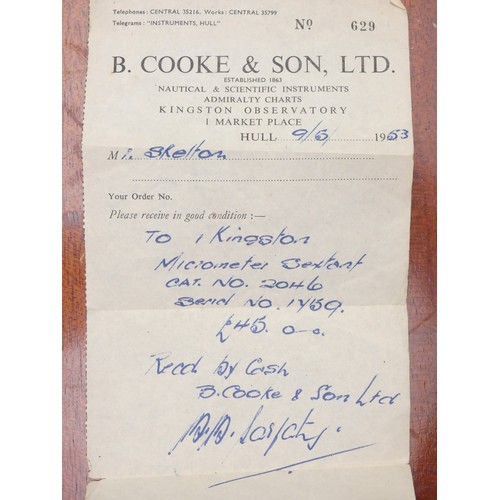 Telephones: CENTRAL 35216. Works: CENTRAL 35799
Telegrams: "INSTRUMENTS, HULL" No 629
B. COOKE & SON, LTD.
ESTABLISHED 1863
NAUTICAL & SCIENTIFIC INSTRUMENTS
ADMIRALTY CHARTS
KINGSTON OBSERVATORY
1 MARKET PLACE
HULL 9/5/ 1953
M T. Skelton
Your Order No.
Please receive in good condition :—
To 1 Kingston
Micrometer Sextant
CAT. NO. 2046
Serial No. 1459.
£45. 0-0.
Recd by Cash
B. Cooke & Son Ltd